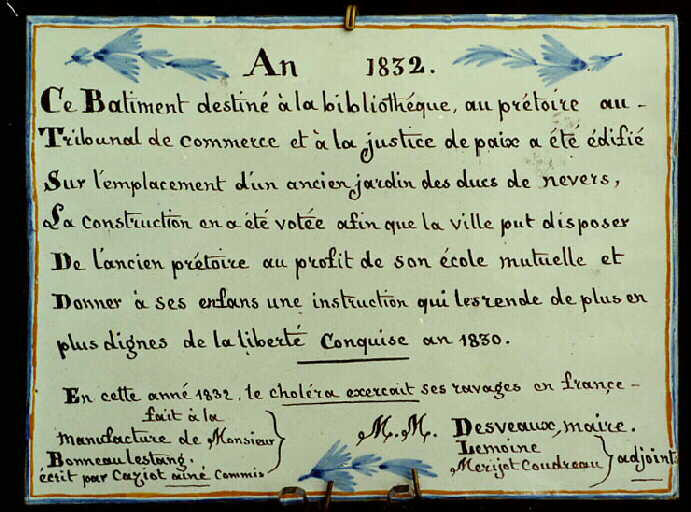 An 1832.
Ce Batiment destiné à la bibliothéque, au prétoire au-
Tribunal de commerce et à la justice de paix a été édifié
Sur l'emplacement d'un ancien jardin des ducs de nevers,
La construction en a été votée afin que la ville put disposer
De l'ancien prétoire au profit de son école mutuelle et
Donner à ses enfans une instruction qui les rende de plus en
plus dignes de la liberté Conquise an 1830.
En cette année 1832, le choléra exercait ses ravages en françe-
fait à la
manufacture de Monsieur
Bonneau lestang.
écrit par Caziot ainé Commis
M.M. Desveaux, maire.
Lemoine
Merijot Coudreau } adjoint